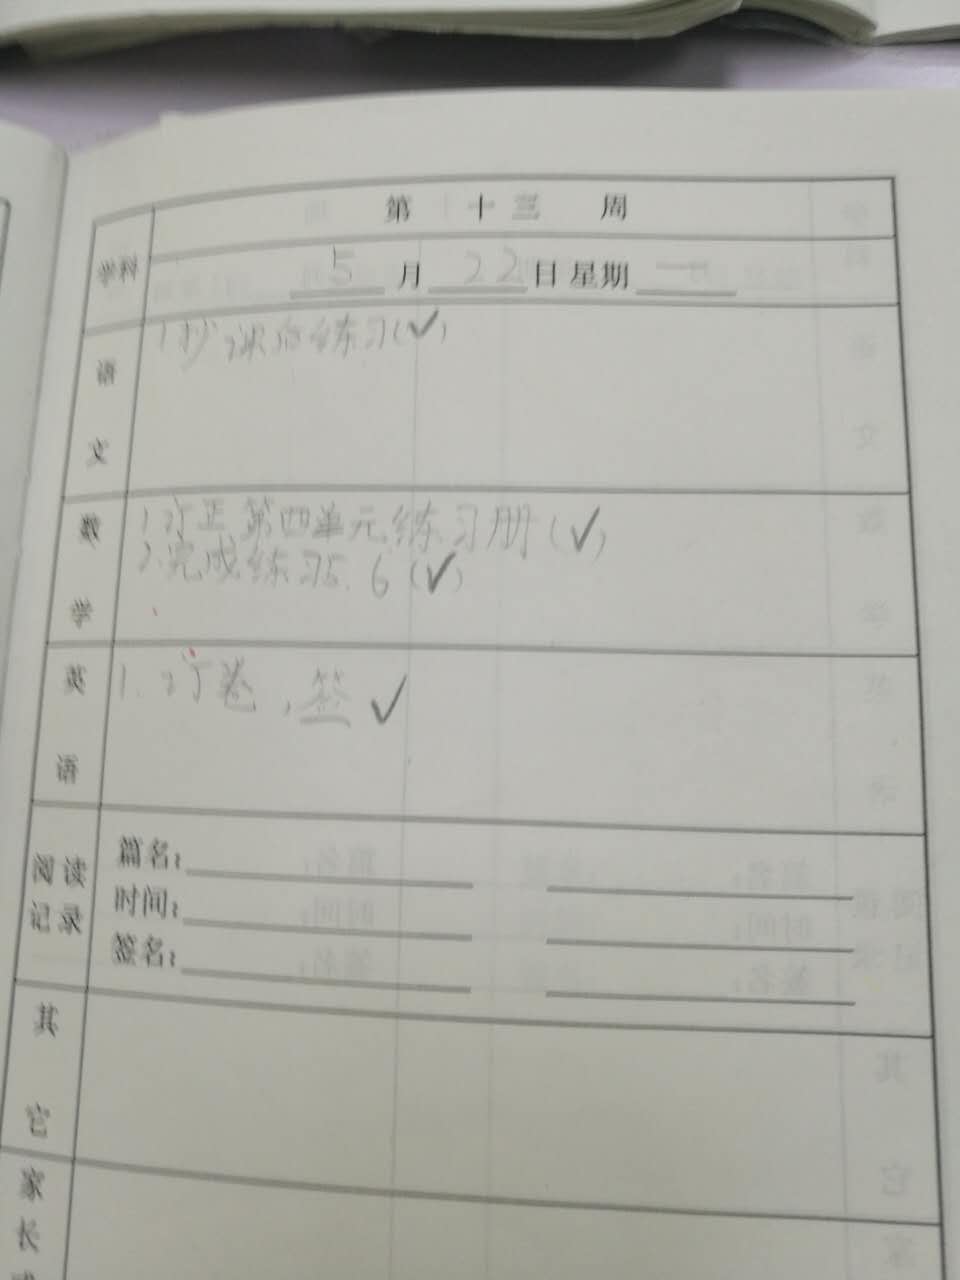 第 十三 周
学科
5月22日星期一
语文
1.抄课后练习(✓)
数学
1.订正第四单元练习册(✓)
2.完成练习5.6(✓)
英语
1.订卷,签✓
阅读记录
篇名:
时间:
签名:
其它
家长